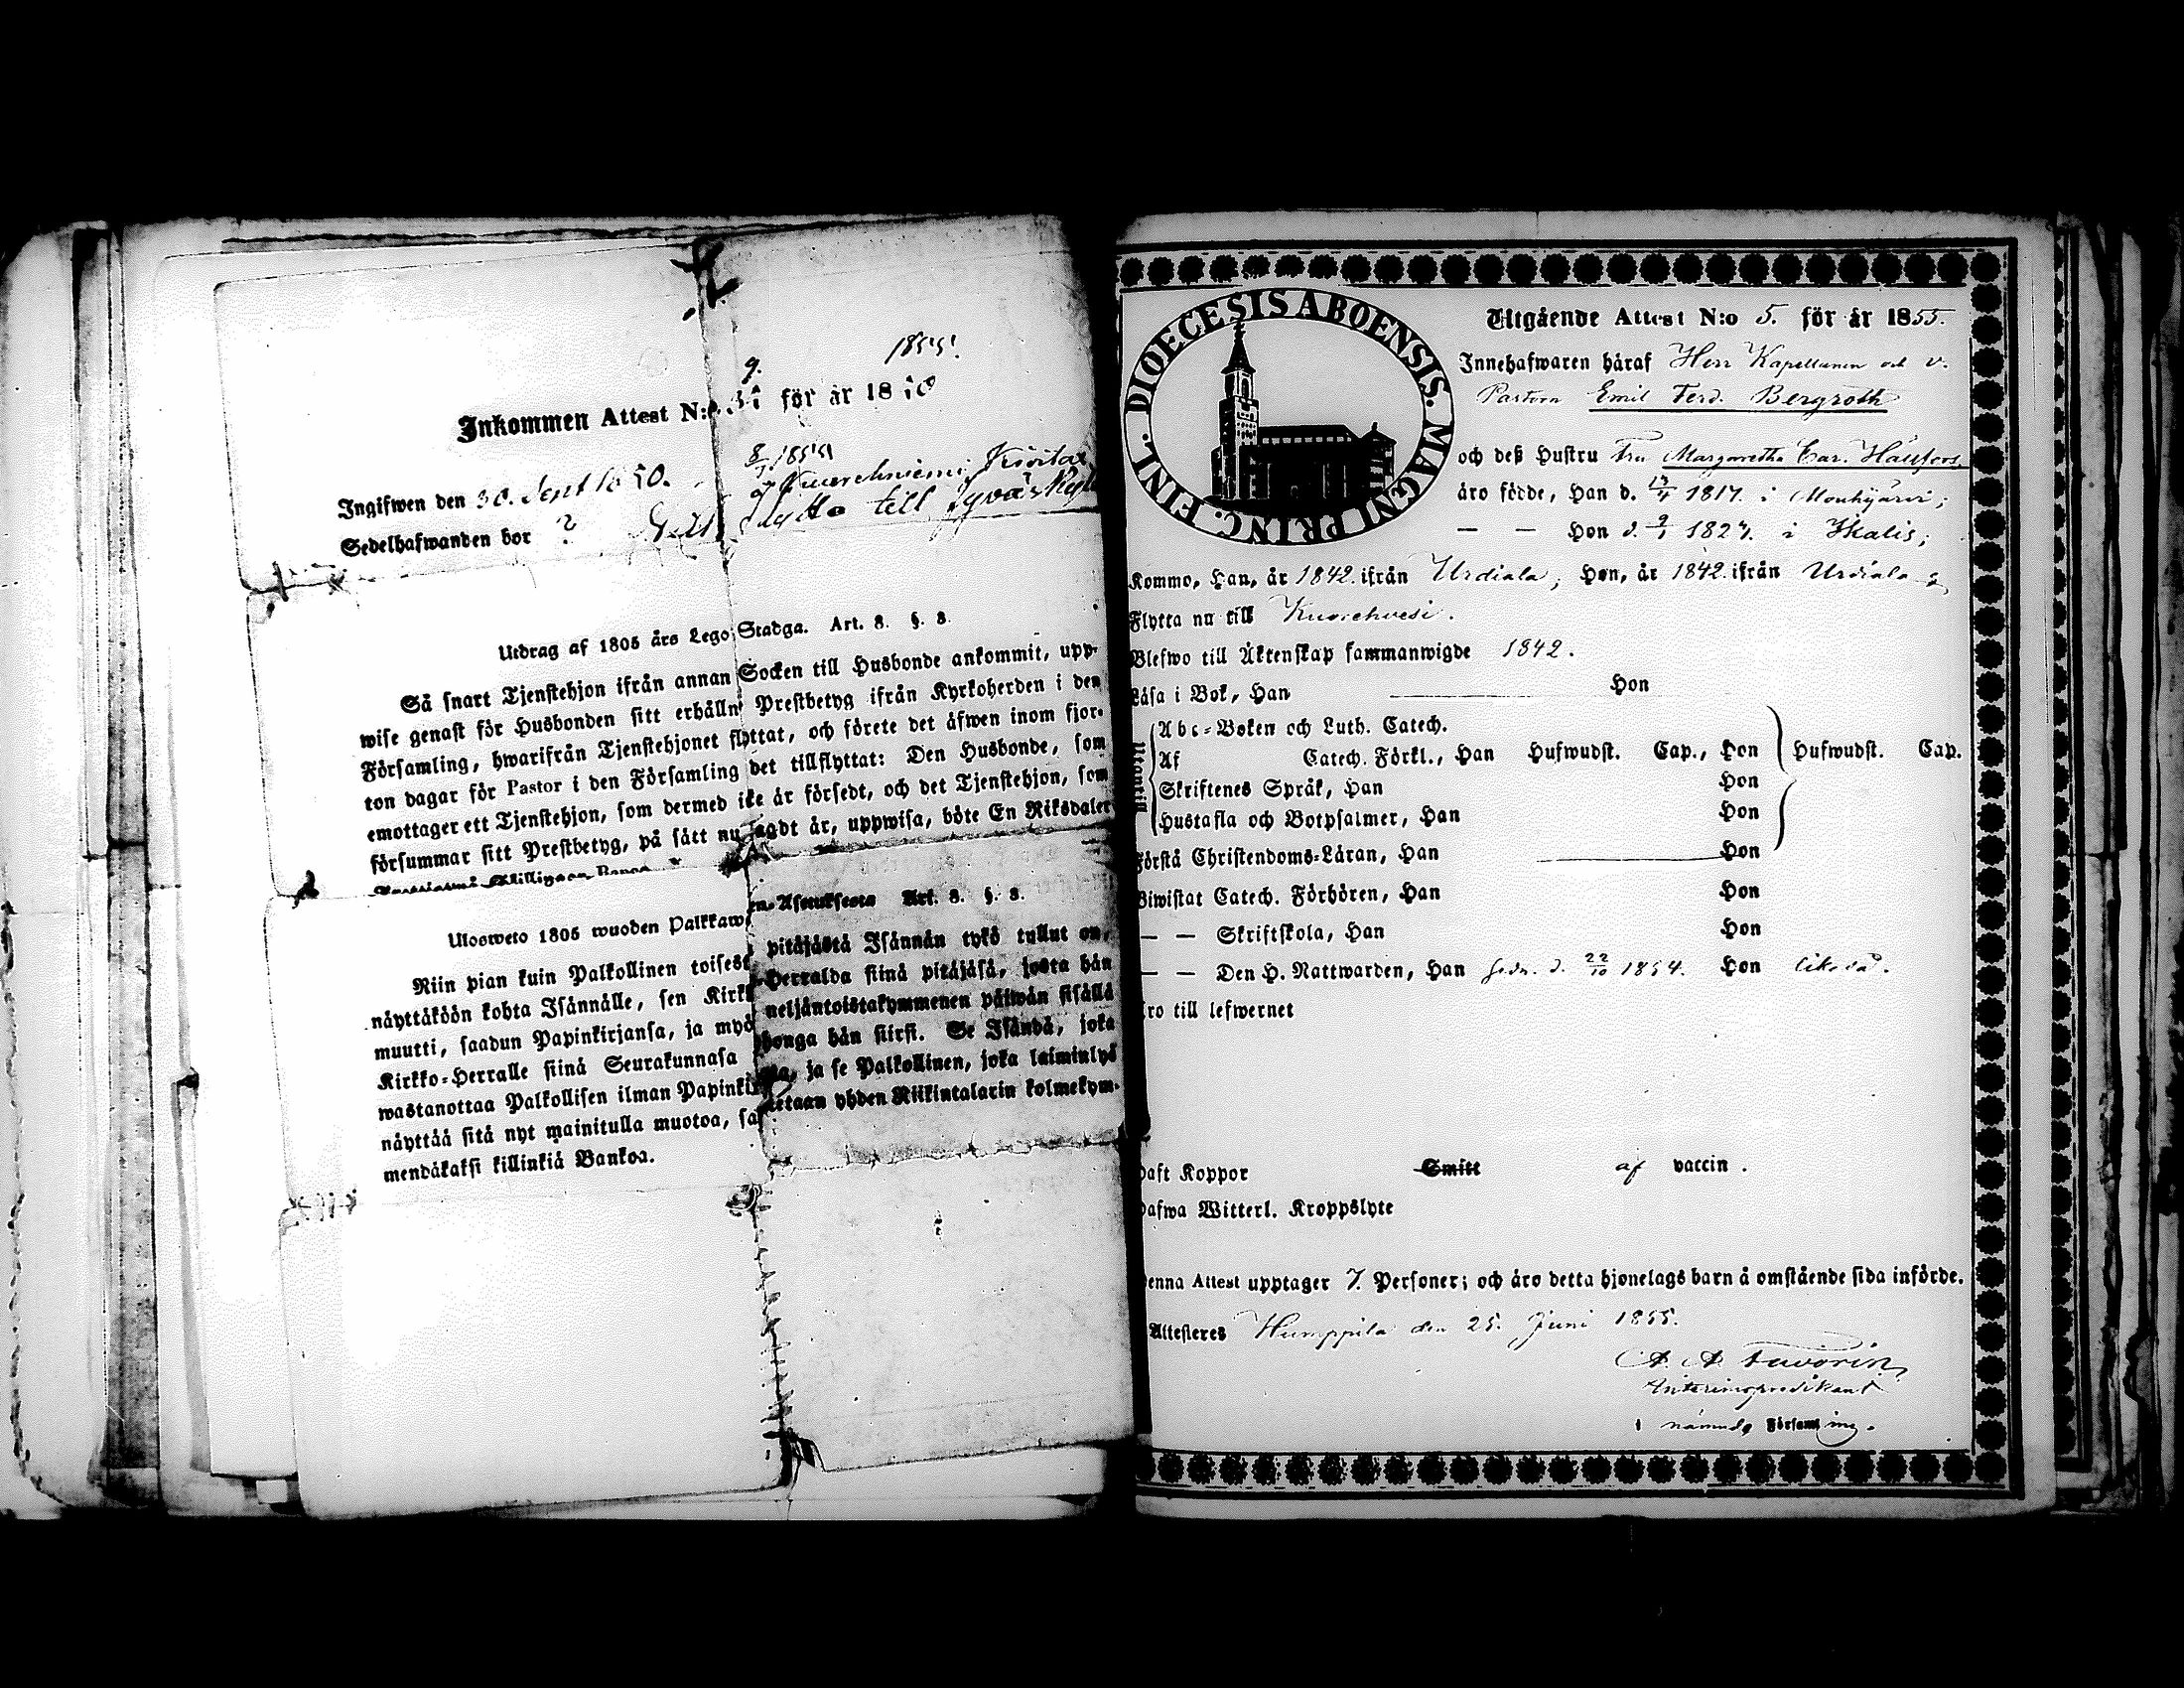 1855.
9.
Inkommen Attest N:o för år 18
8/7 1855
Ingifwen den 30. Sept 1850.
Sedelhafwanden bor ? flytta till Jyväskyl
Utdrag af 1805 års Lego-Stadga. Art. 8. §. 8.
Så snart Tjenstehjon ifrån annan Socken till Husbonde ankommit, upp-
wise genast för Husbonden sitt erhållna Prestbetyg ifrån Kyrkoherden i den
Församling, hwarifrån Tjenstehjonet flyttat, och förete det äfwen inom fjor-
ton dagar för Pastor i den Församling det tillflyttat: Den Husbonde, som
emottager ett Tjenstehjon, som dermed icke är försedt, och det Tjenstehjon, som
försummar sitt Prestbetyg, på sätt nu sagdt är, uppwisa, böte En Riksdaler
Skillingar Banco
Ulosweto 1805 wuoden Palkkaw en-Asetuksesta Art. 8. §. 8.
Niin pian kuin Palkollinen toisest pitäjästä Isännän tykö tullut on,
näyttäköön kohta Isännälle, sen Kirk Herralda siinä pitäjäsä, josta hän
muutti, saadun Papinkirjansa, ja myö neljäntoistakymmenen päiwän sisällä
Kirkko-Herralle siinä Seurakunnasa honga hän siirsi. Se Isändä, joka
wastanottaa Palkollisen ilman Papinki ta, ja se Palkollinen, joka laiminlyö
näyttää sitä nyt mainitulla muotoa, sa etaan yhden Riikintalarin kolmekym-
mendäkaksi killinkiä Bankoa.
DIOECESIS ABOENSIS. MAGNI PRINC. FINL.
Utgående Attest N:o 5. för år 1855.
Innehafwaren häraf Herr Kapellanen och v.
Pastorn Emil Ferd. Bergroth
och deß Hustru Fru Margaretha Car.
äro födde, Han d. 17/4 1817. i Mouhijärvi;
— — Hon d. 9/1 1827. i Ikalis;
Kommo, Han, år 1842. ifrån Urdiala; Hon, år 1842. ifrån Urdiala
Flytta nu till Kuorehvesi.
Blefwo till Äktenskap sammanwigde 1842.
Läsa i Bok, Han Hon
Utantill
Abc-Boken och Luth. Catech.
Af Catech. Förkl., Han Hufwudst. Cap., Hon Hufwudst. Cap.
Skriftenes Språk, Han Hon
Hustafla och Botpsalmer, Han Hon
Förstå Christendoms-Läran, Han Hon
Biwistat Catech. Förhören, Han Hon
— — Skriftskola, Han Hon
— — Den H. Nattwarden, Han sedn. d. 22/10 1854. Hon likaså.
Äro till lefwernet
Haft Koppor Smitt af vaccin.
Hafwa Witterl. Kroppslyte
Denna Attest upptager 7. Personer; och äro detta hjonelags barn å omstående sida införde.
Attesteres Humppila den 25. Juni 1855.
A. A. Favorin
Interimspredikant
i nämnde Församling.